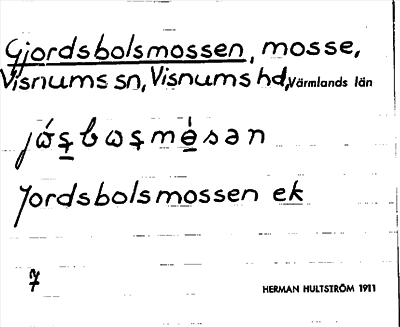 Gjordsbolsmossen, mosse,
Visnums sn, Visnums hd, Värmlands län
Jordsbolsmossen ek
7
HERMAN HULTSTRÖM 1911